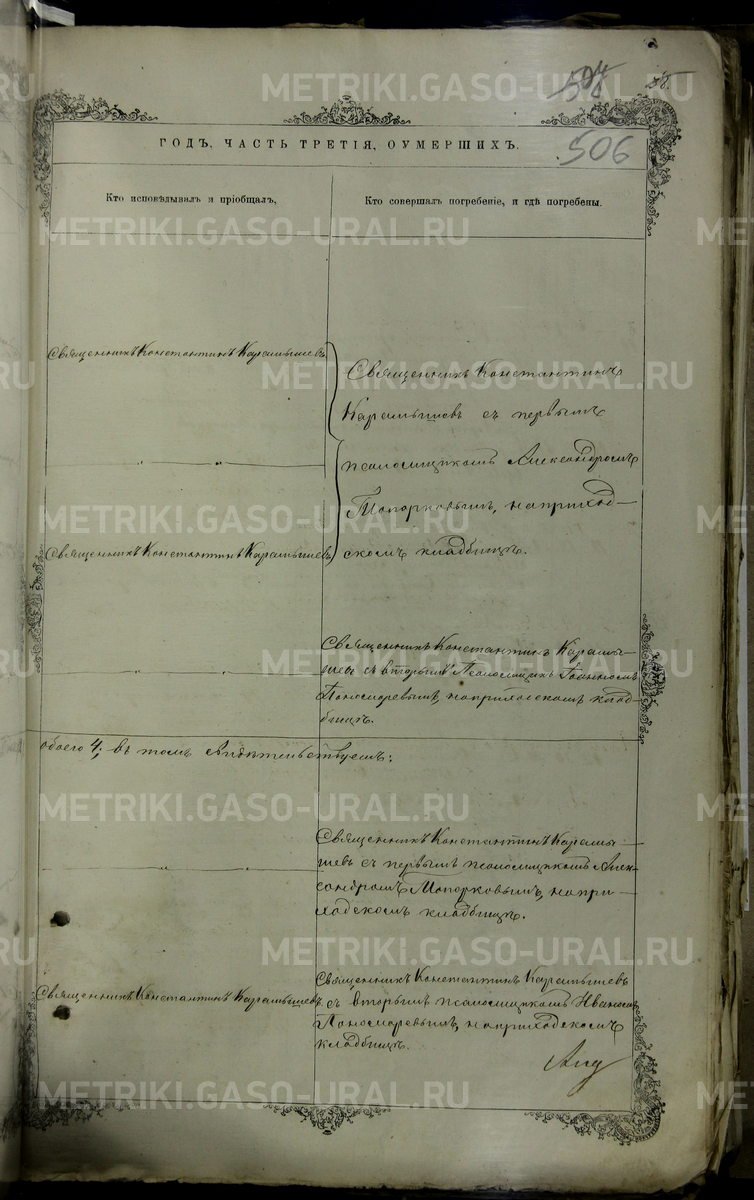 58.
594
506
ГОДЪ, ЧАСТЬ ТРЕТІЯ, ОУМЕРШИХЪ.
Кто исповѣдывалъ и пріобщалъ,
Кто совершалъ погребеніе, и гдѣ погребены.
Священникъ Константинъ Карамышевъ
Священникъ Константинъ
Карамышевъ съ первымъ
псаломщикомъ Александромъ
Топорковымъ, на приход-
скомъ кладбищѣ.
Священникъ Константинъ Карамышевъ
Священникъ Константинъ Карамы-
шевъ съ вторымъ Псаломщикъ Іоанномъ
Пономаревымъ, на приходскомъ клад-
бищѣ.
обоего 4; въ томъ свидѣтельствуемъ:
Священникъ Константинъ Карамы-
шевъ съ первымъ псаломщикомъ Алек-
сандромъ Топорковымъ, на при-
ходскомъ кладбищѣ.
Священникъ Константинъ Карамышевъ
Священникъ Константинъ Карамышевъ
съ вторымъ псаломщикомъ Иваномъ
Пономаревымъ, на приходскомъ
кладбищѣ.
METRIKI.GASO-URAL.RU